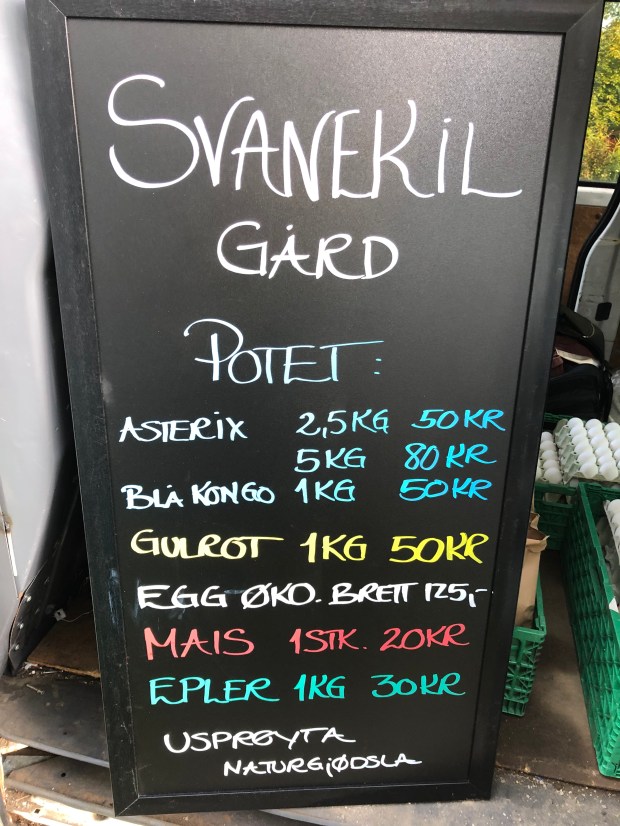 SVANEKIL
GÅRD
POTET:
ASTERIX 2,5KG 50KR
5KG 80KR
BLÅ KONGO 1KG 50KR
GULROT 1KG 50KR
EGG ØKO. BRETT 125,-
MAIS 1STK. 20KR
EPLER 1KG 30KR
USPRØYTA
NATURGJØDSLA